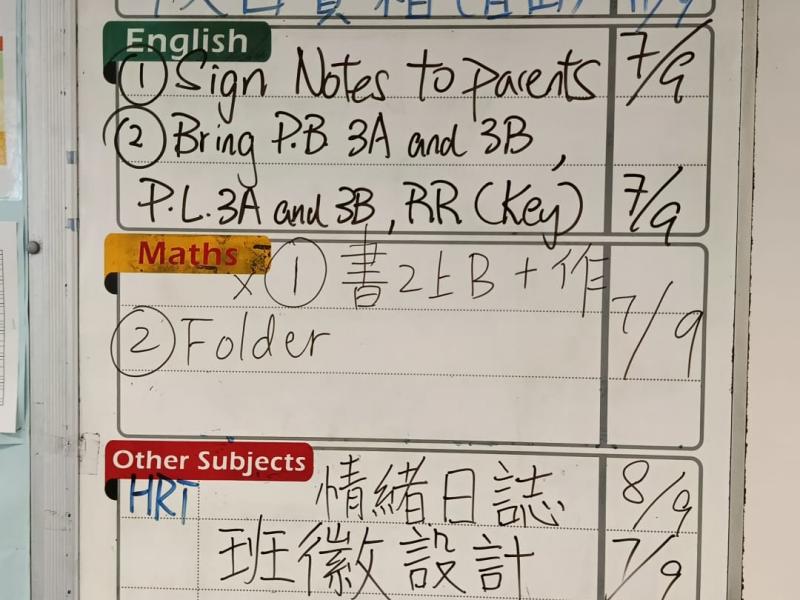 English
① Sign Notes to parents 7/9
② Bring P.B. 3A and 3B,
P.L. 3A and 3B, RR (Key) 7/9
Maths
x ① 書2上B + 作
② Folder 7/9
Other Subjects
HRT 情緒日誌 8/9
班徽設計 7/9